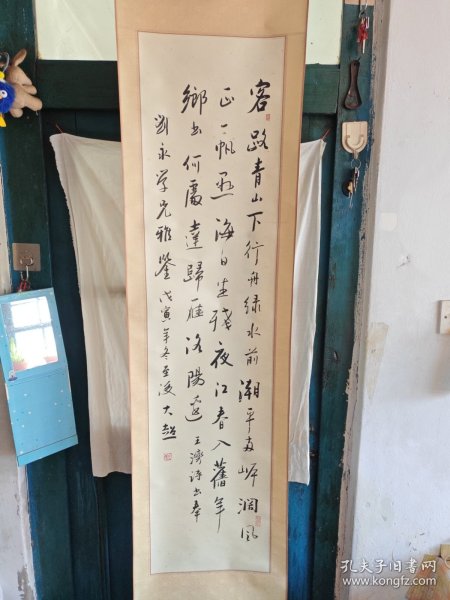 客路青山下行舟绿水前潮平两岸濶風
正一帆悬海日生残夜江春入舊年
鄉书何處達歸雁洛陽边王濟詩书奉
劉永学兄雅鑒戊寅年冬至後大超
孔夫子旧书网
www.kongfz.com